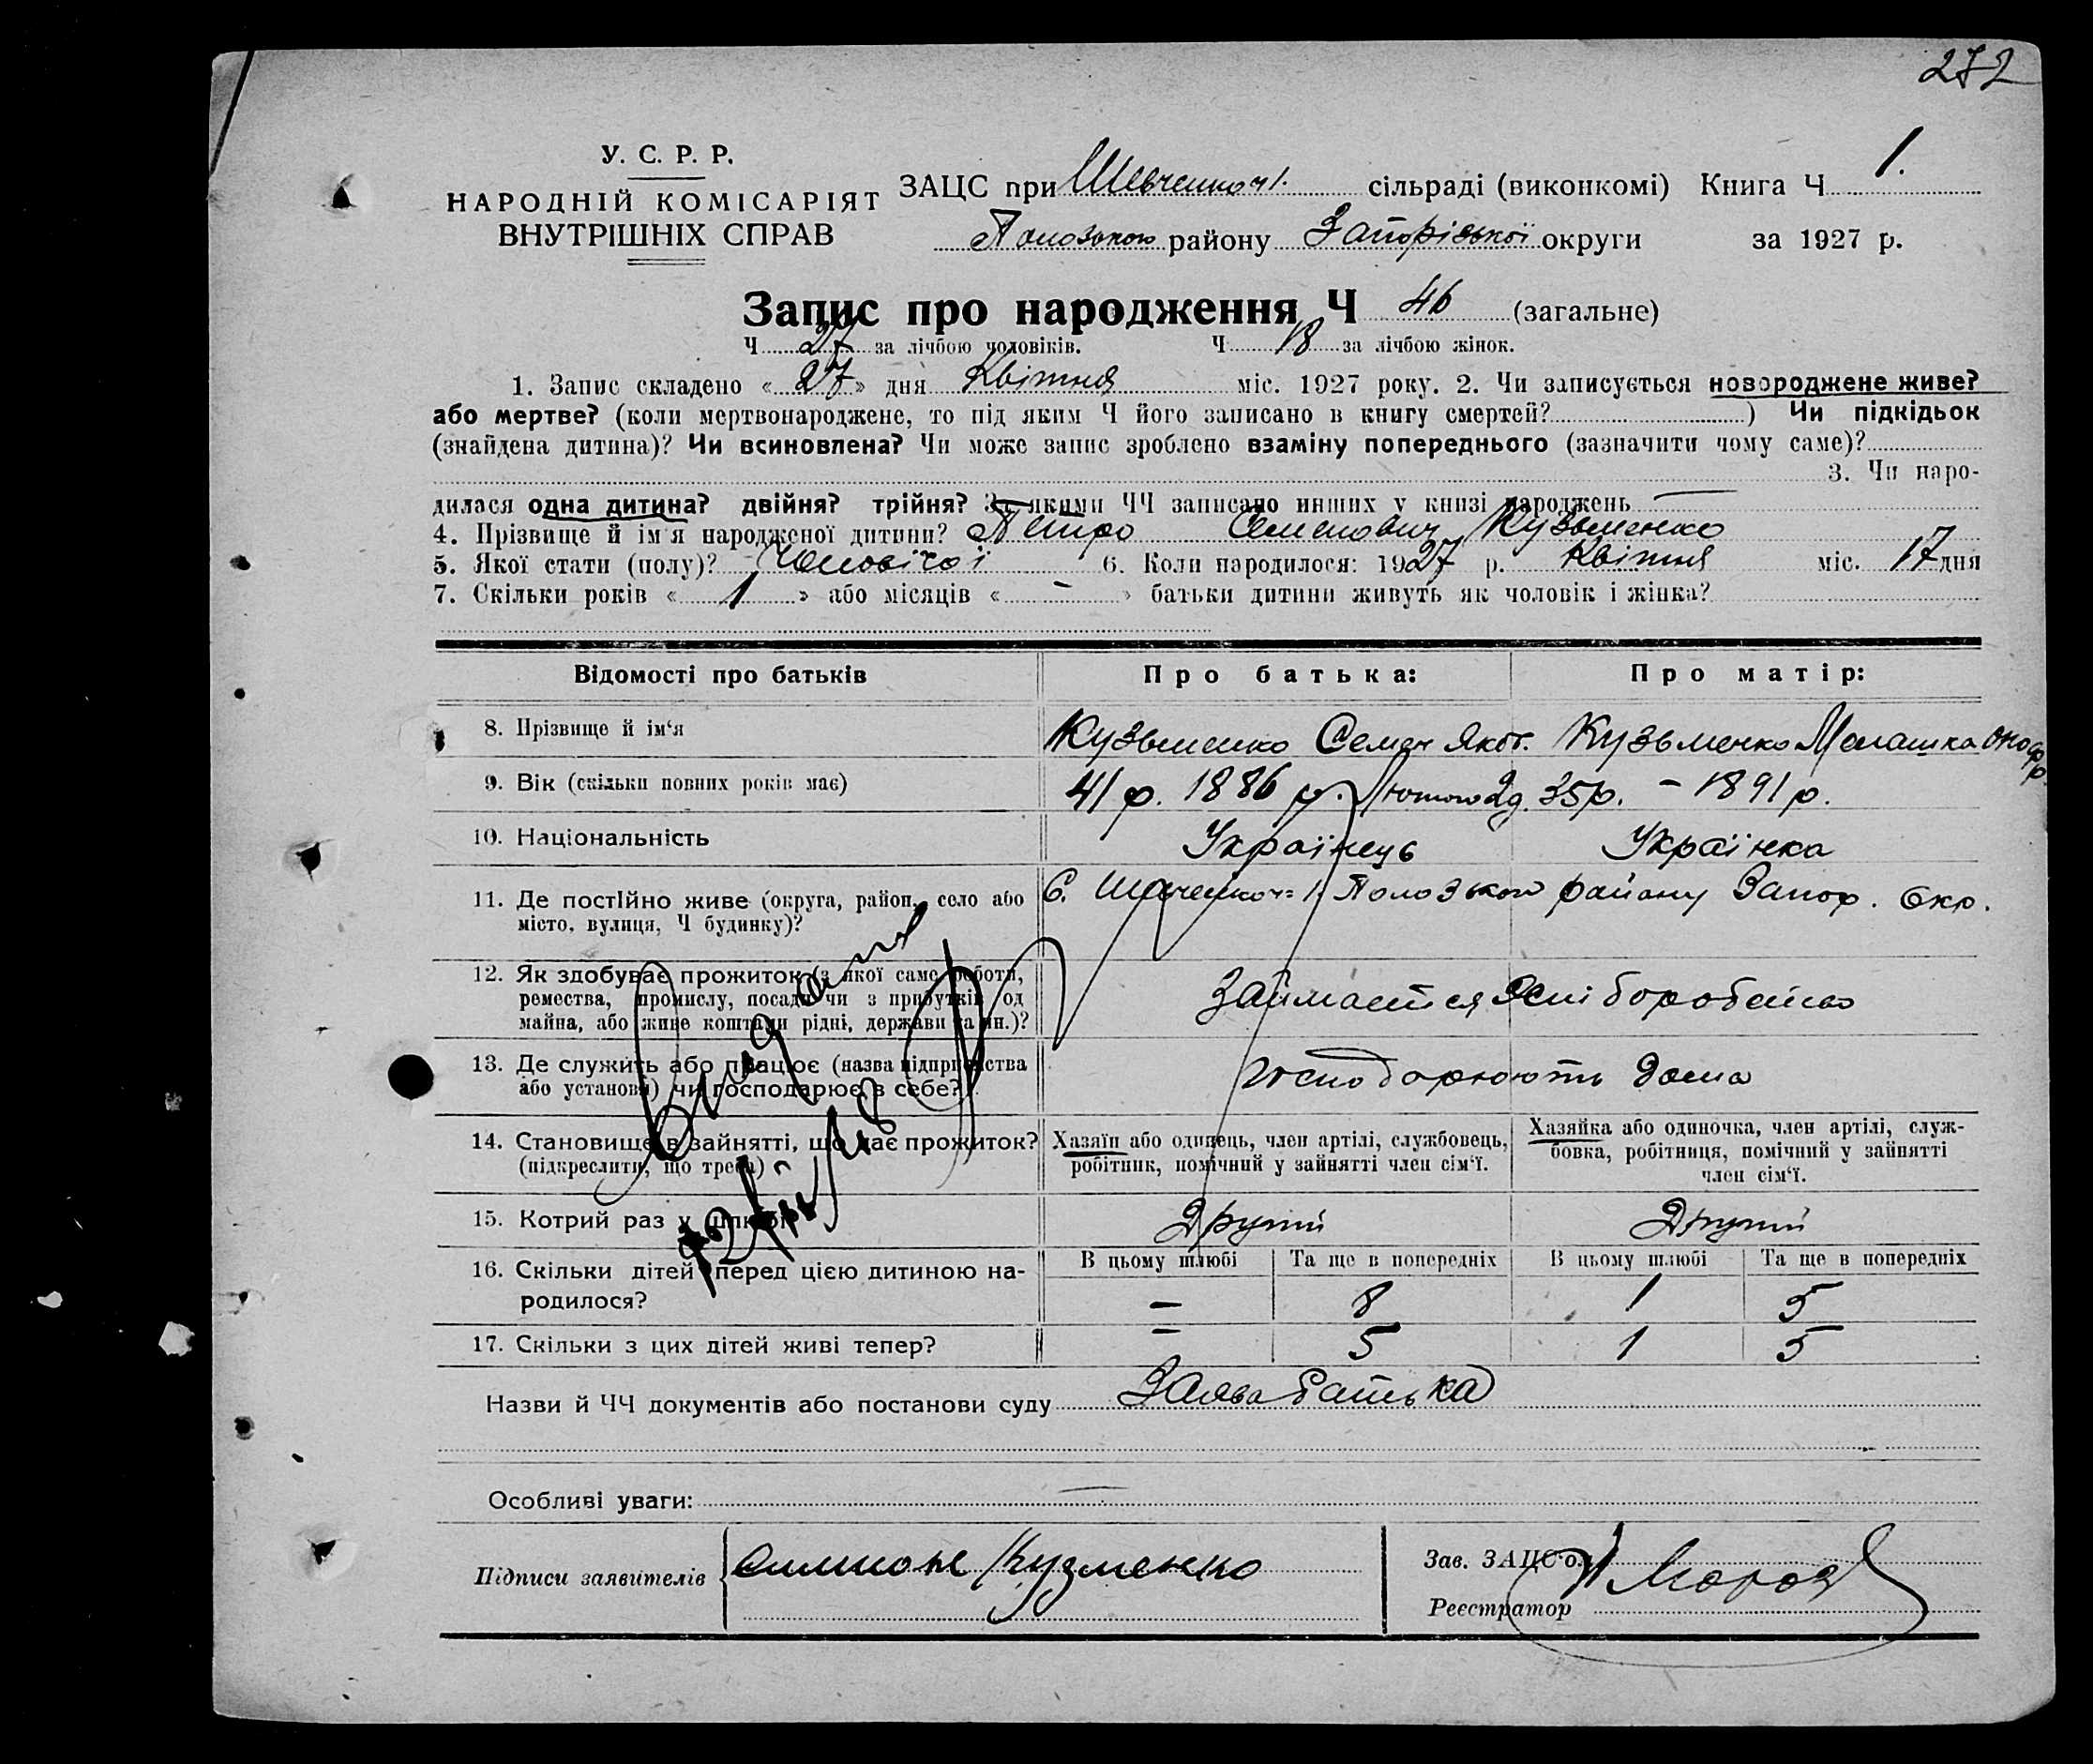 272
У. С. Р. Р.
НАРОДНІЙ КОМІСАРІЯТ
ВНУТРІШНІХ СПРАВ
ЗАЦС при Шевченко №1. сільраді (виконкомі) Книга Ч 1.
Пологського району Запорізької округи за 1927 р.
Запис про народження Ч 46 (загальне)
Ч 27 за лічбою чоловіків. Ч 18 за лічбою жінок.
1. Запис складено « 27 » дня Квітня міс. 1927 року. 2. Чи записується новороджене живе?
або мертве? (коли мертвонароджене, то під яким Ч його записано в книгу смертей? ) Чи підкідьок
(знайдена дитина)? Чи всиновлена? Чи може запис зроблено взаміну попереднього (зазначити чому саме)?
3. Чи наро-
дилася одна дитина? двійня? трійня? За якими ЧЧ записано инших у книзі народжень —
4. Прізвище й ім'я народженої дитини? Петро Семенович Кузьменко
5. Якої стати (полу)? Чоловічої 6. Коли народилося: 1927 р. Квітня міс. 17 дня
7. Скільки років « 1 » або місяців « - » батьки дитини живуть як чоловік і жінка?
Відомості про батьків Про батька: Про матір:
8. Прізвище й ім'я Кузьменко Семен Яков. Кузьменко Мелашка Онофр.
9. Вік (скільки повних років має) 41 р. 1886 р. Лютого 2д. 35р. - 1891 р.
10. Національність Українець Українка
11. Де постійно живе (округа, район, село або
місто, вулиця, Ч будинку)?
С. Шевченко №1 Пологського району Запор. Окр.
12. Як здобуває прожиток (з якої саме роботи,
ремества, промислу, посади чи з прибутків од
майна, або живе коштами рідні, держави та ин.)?
Займается хліборобство
13. Де служить або працює (назва підприємства
або установи) чи господарює в себе?
Господорюють дома
14. Становище в зайнятті, що дає прожиток?
(підкреслити, що треба)
Хазяїн або одинець, член артілі, службовець,
робітник, помічний у зайнятті член сім'ї.
Хазяйка або одиночка, член артілі, служ-
бовка, робітниця, помічний у зайнятті
член сім'ї.
15. Котрий раз у шлюбі? Другий Другий
16. Скільки дітей перед цією дитиною на-
родилося?
В цьому шлюбі Та ще в попередніх В цьому шлюбі Та ще в попередніх
— 8 1 5
17. Скільки з цих дітей живі тепер? — 5 1 5
Назви й ЧЧ документів або постанови суду Заява батька
Особливі уваги: —
Підписи заявителів Кузменко
Зав. ЗАЦС'ом Мороз
Реєстратор